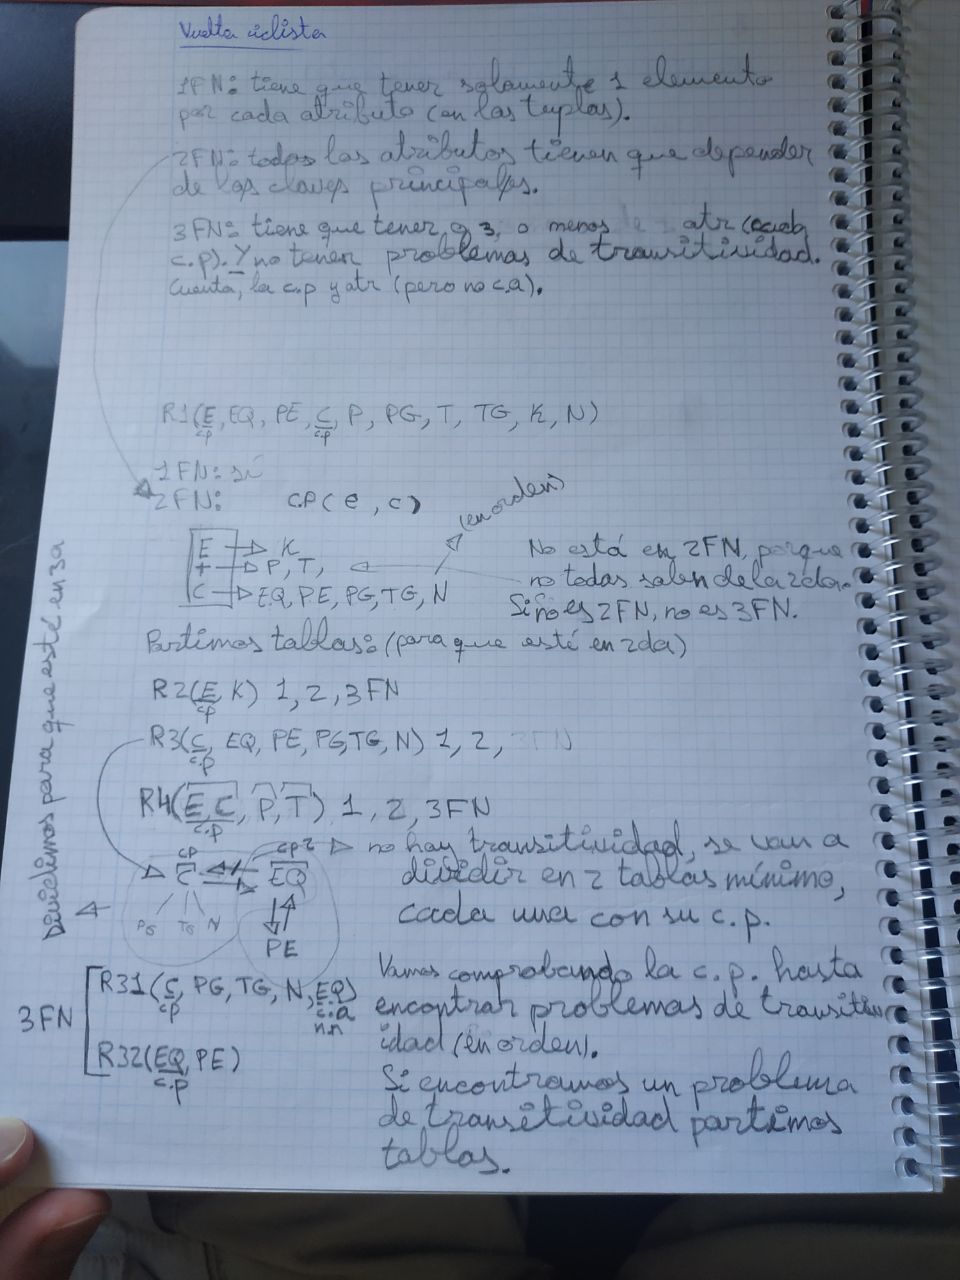 Vuelta ciclista
1FN: tiene que tener solamente 1 elemento
por cada atributo (en las tuplas).
2FN: todos los atributos tienen que depender
de las claves principales.
3FN: tiene que tener 3, o menos atr
c.p). Y no tener problemas de transitividad.
Cuenta, la c.p y atr (pero no c.a).
R1(E, EQ, PE, C, P, PG, T, TG, K, N)
c.p c.p
1FN: sí
2FN: C.P(e, c)
(en orden)
E → K
+ → P, T,
C → EQ, PE, PG, TG, N
No está en 2FN, porque
no todas salen de la 2da.
Si no es 2FN, no es 3FN.
Partimos tablas: (para que esté en 2da)
R2(E, K) 1, 2, 3FN
c.p
R3(C, EQ, PE, PG, TG, N) 1, 2, 3FN
c.p
R4(E, C, P, T) 1, 2, 3FN
c.p
Dividimos para que esté en 3a
cp cp2
C EQ
PG TG N
PE
no hay transitividad, se van a
dividir en 2 tablas mínimo,
cada una con su c.p.
3FN
R31(C, PG, TG, N, EQ)
c.p c.a
n.n
R32(EQ, PE)
c.p
Vamos comprobando la c.p. hasta
encontrar problemas de transitiv
idad (en orden).
Si encontramos un problema
de transitividad partimos
tablas.